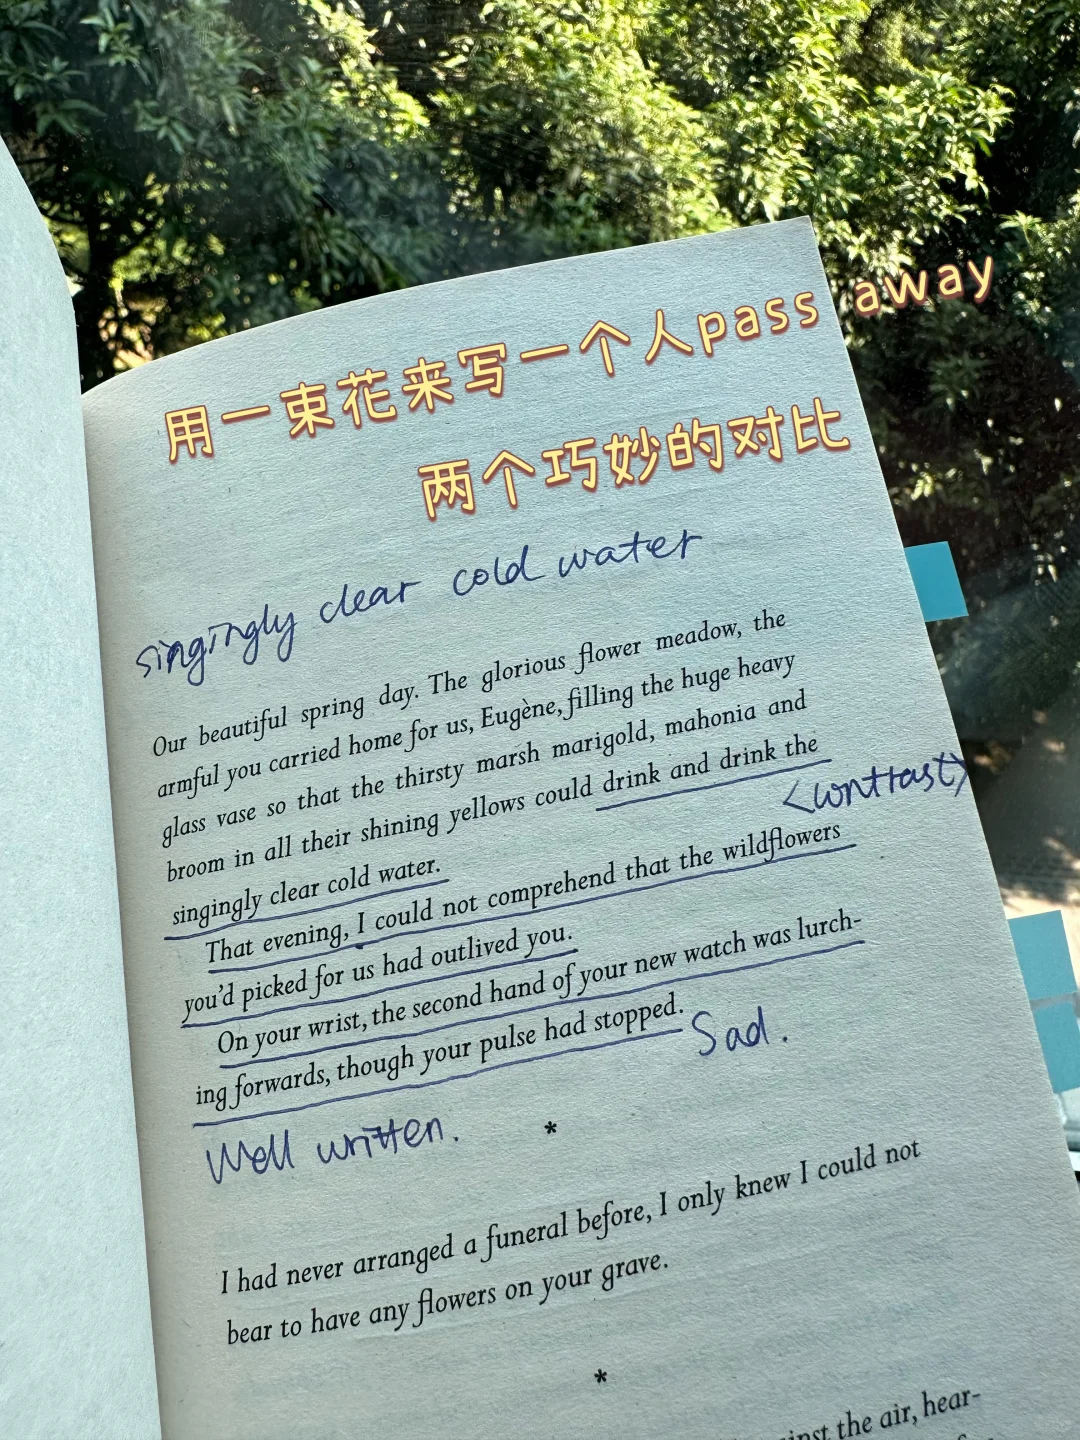 用一束花来写一个人pass away
两个巧妙的对比
singingly clear cold water
Our beautiful spring day. The glorious flower meadow, the
armful you carried home for us, Eugène, filling the huge heavy
glass vase so that the thirsty marsh marigold, mahonia and
broom in all their shining yellows could drink and drink the
<contrast>
singingly clear cold water.
That evening, I could not comprehend that the wildflowers
you'd picked for us had outlived you.
On your wrist, the second hand of your new watch was lurch-
ing forwards, though your pulse had stopped.
Sad.
Well written.
*
I had never arranged a funeral before, I only knew I could not
bear to have any flowers on your grave.
*
the air, hear-